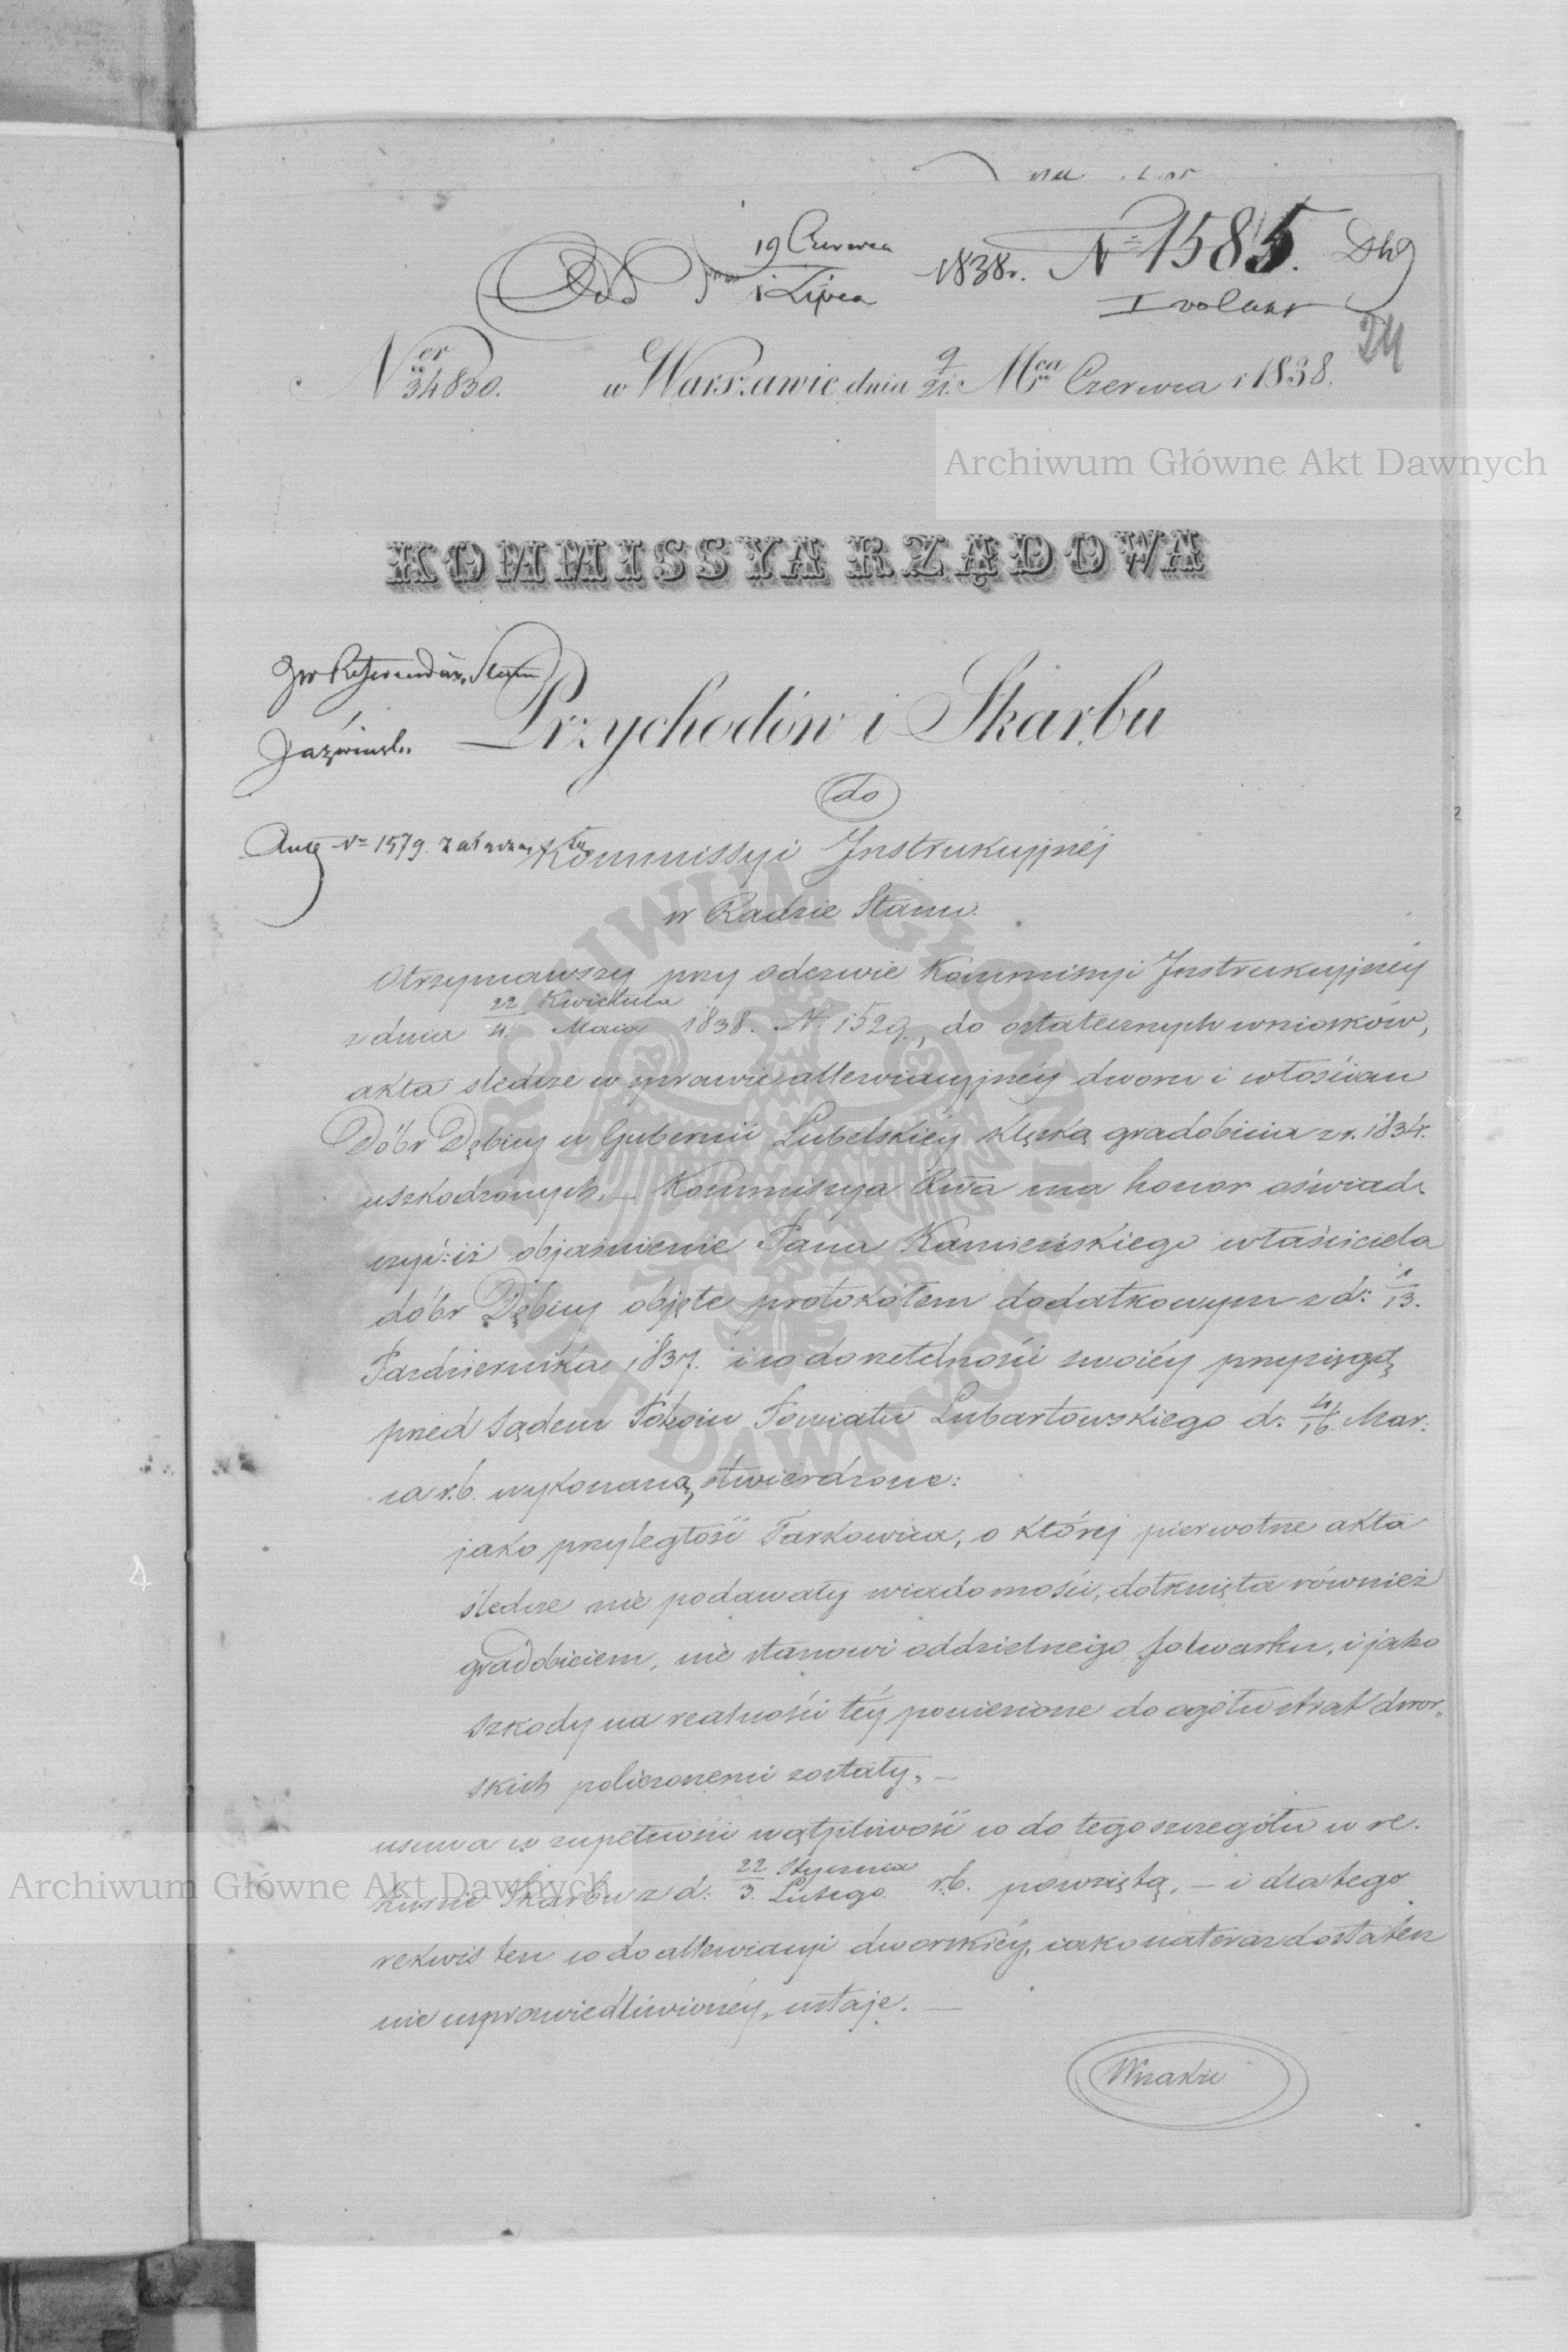 19 Czerwca
Odd 1 Lipca 1838r. N 1585. Dhg
I volum
24
Ner 34830. w Warszawie dnia 9/21. Mca Czerwca r 1838.
Archiwum Główne Akt Dawnych
KOMMISSYA RZĄDOWA
JW Referendarz Stanu
Przychodów i Skarbu
Jaźwiński
do
Ante N 1579.
Kommissyi Instrukcyjnéj
w Radzie Stanu.
Otrzymawszy przy odezwie Kommissyi Instrukcyjnéj
z dnia 22 Kwietnia/4. Maia 1838. N 1529, do ostatecznych wniosków,
akta śledcze w sprawie allewiacyjnéj dworu i włościan
Dóbr Dębicy w Gubernii Lubelskiéj klęską gradobicia z r. 1834.
uszkodzonych. — Kommissya Rwa ma honor oświad-
czyć: iż objaśnienie Pana Kamieńskiego właściciela
dóbr Dębicy objęte protokółem dodatkowym z d: 1/13.
Października 1837. i co do rzetelności swoiéy przysięgą
przed Sądem Pokoiu Powiatu Lubartowskiego d: 4/16 Mar:
ca r.b. wykonaną, stwierdzone:
jako przyległość Tarkowica, o któréj pierwotne akta
śledcze nie podawały wiadomości, dotknięta również
gradobiciem, nie stanowi oddzielnego folwarku, i jako
szkody na realności téy poniesione do ogółu strat dwor„
skich policzonemi zostały, —
usuwa w zupełności wątpliwość co do tego szczegółu w re-
skrypcie Skarbu z d: 22 Stycznia/3. Lutego. r.b. powziętą, — i dlatego
rekwis ten co do allewiacyi dworskiéy, iako nateraz dostatecz
nie usprawiedliwionéy, ustaje. —
Wszakże
ARCHIWUM GŁÓWNE AKT DAWNYCH
Archiwum Główne Akt Dawnych